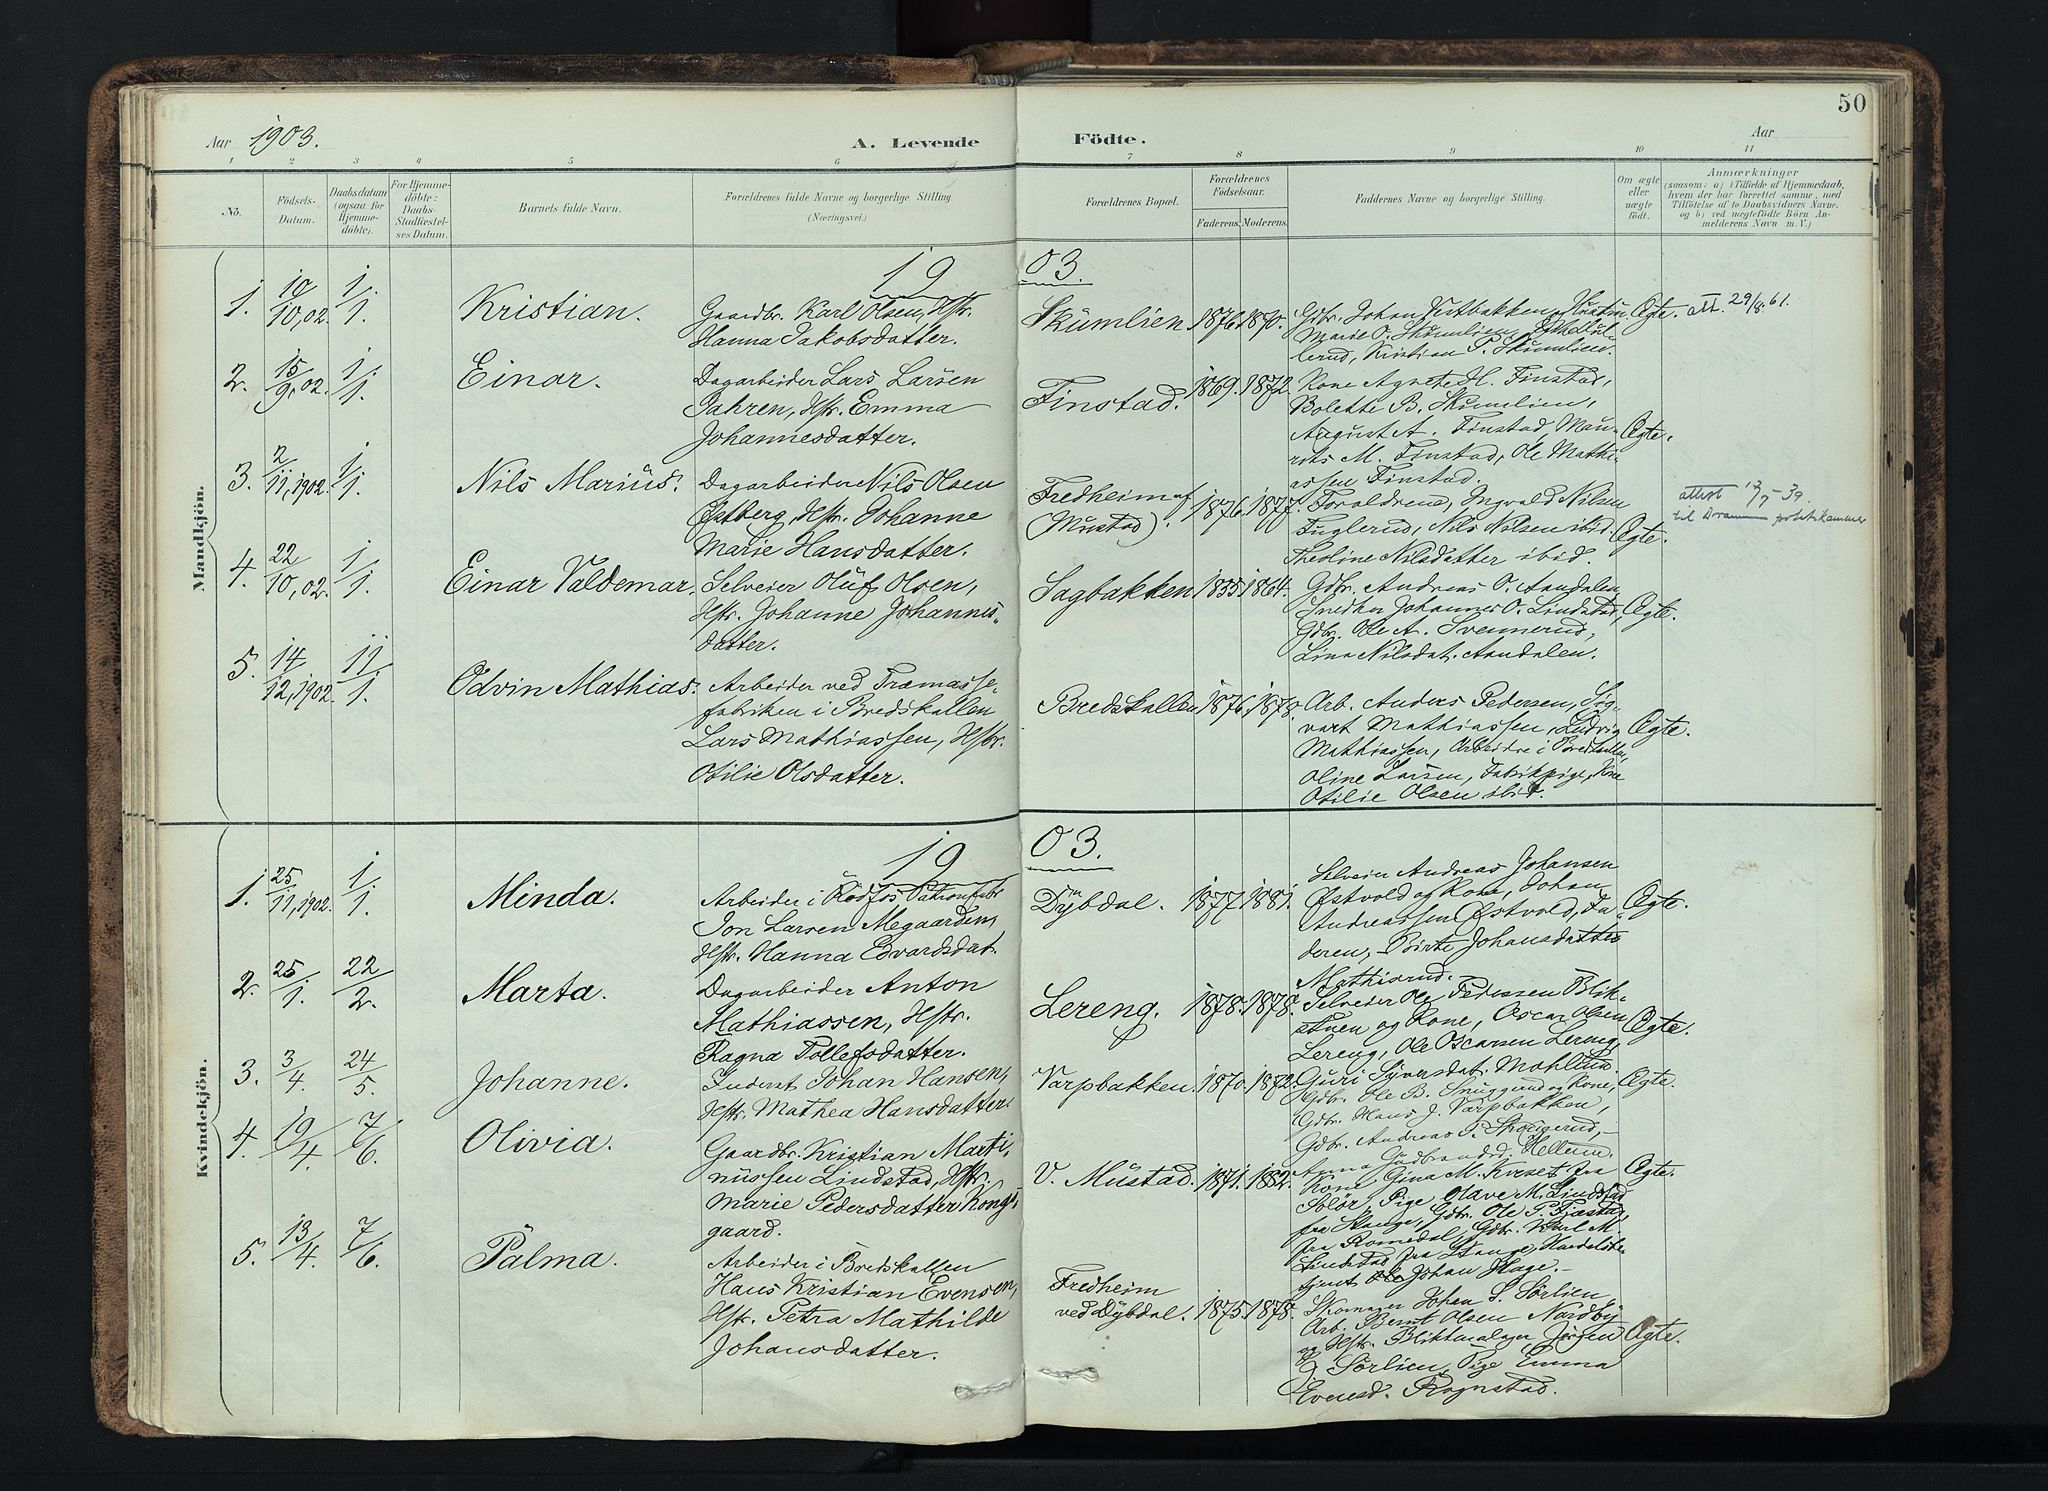 50
Aar 1903.
A. Levende Födte.
Aar
1 2 3 4 5 6 7 8 9 10 11
No.
Födsels-Datum.
Daabsdatum (ogsaa for Hjemme-döbte).
For Hjemme-döbte: Daabs-Stadfæstel-ses Datum.
Barnets fulde Navn.
Forældrenes fulde Navne og borgerlige Stilling. (Næringsvei.)
Forældrenes Bopæl.
Forældrenes Födselsaar.
Faderens. Moderens.
Faddernes Navne og borgerlige Stilling.
Om ægte eller uægte födt.
Anmærkninger
(saasom: a) i Tilfælde af Hjemmedaab,
hvem der har forrettet samme, med
Tilföielse af to Daabsvidners Navne.
og b) ved uægtefödte Börn An-
melderens Navn m. V.)
Mandkjön.
19 03.
1. 10/10,02. 1/1. Kristian.
Gaardbr. Karl Olsen, Hstr.
Hanna Jakobsdatter.
Skumlien. 1876. 1870.
Gdbr. Johan Vestbakken,
Marie O. Skumlien,
lerud, Kristian P. Skumlien.
Ægte. att. 29/8. 61.
2. 15/9, 02. 1/1. Einar.
Dagarbeider Lars Larsen
Jahren, Hstr. Emma
Johannesdatter.
Finstad. 1869. 1872.
Kone Agnete H. Finstad,
Bolette B. Skumlien,
August A. Finstad, Mau-
rits M. Finstad, Ole Mathi-
assen Finstad.
Ægte.
3. 2/11, 1902. 1/1. Nils Marius.
Dagarbeider Nils Olsen
Østberg, Hstr. Johanne
Marie Hansdatter.
Fredheim af
(Mustad). 1876. 1877.
Forældrene, Ingvald Nilsen
Fuglerud, Nils Nilsen ibid.
Theoline Nilsdatter ibid.
Ægte.
attest - 39.
til Dramm politikammer
4. 22/10, 02. 1/1. Einar Valdemar.
Selveier Oluf Olsen,
Hstr. Johanne Johannes-
datter.
Sagbakken 1835. 1864.
Gdbr. Andreas O. Aandalen
Snedker Johannes O. Lindstad,
Gdbr. Ole A. Svennerud,
Lina Nilsdat. Aandalen.
Ægte.
5. 14/12, 1902. 11/1. Odvin Mathias.
Arbeider ved Træmasse-
fabriken i Bredskallen
Lars Mathiassen, Hstr.
Otilie Olsdatter.
Bredskallen 1876. 1878.
Arb. Anders Pedersen, Sig-
vart Mathiassen, Ludvig
Mathiassen, Arbeidre i Bredskallen,
Oline Larsen, Fabrikpige, Kone
Otilie Olsen ibid.
Ægte.
Kvindekjön.
19 03.
1. 25/11, 1902. 1/1. Minda.
Arbeider i Rödfos Patronfabr.
Jon Larsen Megaarden,
Hstr. Hanna Edvardsdat.
Dybdal. 1877. 1881.
Selveier Andreas Johansen
Østvold og Kone, Johan
Andreassen Østvold, Fa-
deren, Birte Johansdatter
Mathisrud.
Ægte.
2. 25/1. 22/2. Marta.
Dagarbeider Anton
Mathiassen, Hstr.
Ragna Tollefsdatter.
Lereng. 1878. 1878.
Selveier Ole Pedersen Blik-
stuen og Kone, Oscar Olsen
Lereng, Ole Oscarsen Lereng,
Guri Syversdat. Mæhlum.
Ægte.
3. 3/4. 24/5. Johanne.
Inderst Johan Hansen,
Hstr. Mathea Hansdatter.
Varpbakken. 1870. 1872.
Gdbr. Ole B. Snuggerud og Kone,
Gdbr. Hans J. Varpbakken,
Gdbr. Andreas P. Skougerud,
Anna Gudbrandsd. Hellum.
Ægte.
4. 19/4. 7/6. Olivia.
Gaardbr. Kristian Marti-
nussen Lindstad, Hstr.
Marie Pedersdatter Kongs-
gaard.
V. Mustad. 1871. 1882.
Kone Gina M. Kveset fra
Solör, Pige Olave M. Lindstad
fra Stange, Gdbr. Ole P. Fjæstad,
fra Romedal, Gdbr. Karl M.
Lindstad fra Stange, Handelsbe-
tjent Ole Johan Hage.
Ægte.
5. 13/4. 7/6. Palma.
Arbeider i Bredskallen
Hans Kristian Evensen,
Hstr. Petra Mathilde
Johansdatter.
Fredheim
ved Dybdal. 1875. 1878.
Skomager Johan S. Sörlien,
Arb. Bernt Olsen Nordby
og Hstr. Blikkenslager Jörgen
Sörlien, Pige Emma
Evensd. Rognstad.
Ægte.